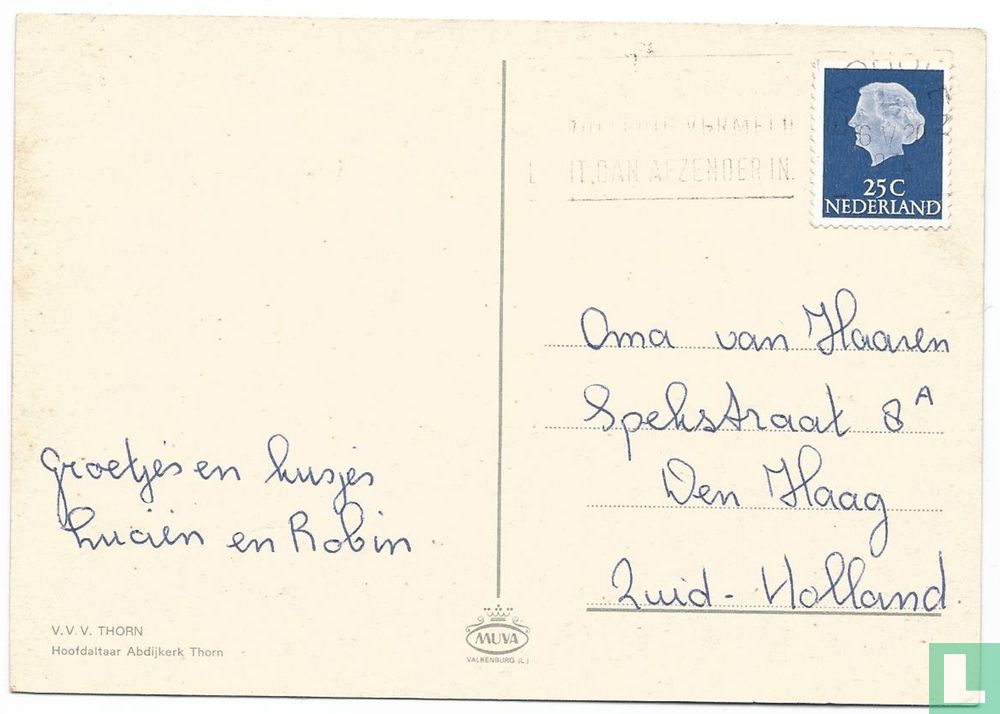 Groetjes en kusjes
Luciën en Robin.
V.V.V. THORN
Hoofdaltaar Abdijkerk Thorn
MUVA
VALKENBURG (L.)
VERMELD
DAN AFZENDER IN.
25C
NEDERLAND
Oma van Haaren
Spekstraat 8A
Den Haag
Zuid-Holland
L